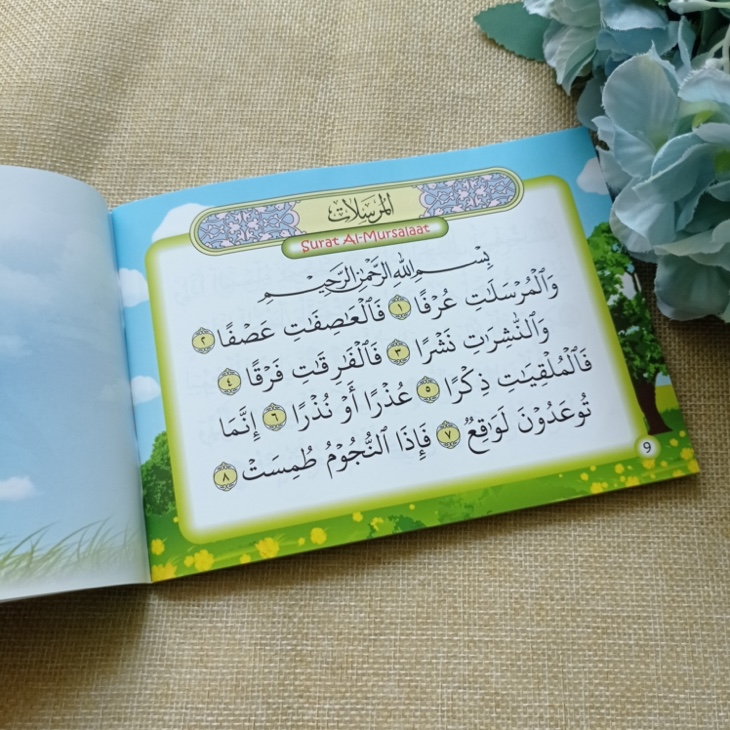 المرسلات
Surat Al-Mursalaat
بِسْمِ اللهِ الرَّحْمٰنِ الرَّحِيْمِ
وَٱلْمُرْسَلَٰتِ عُرْفًا ١ فَٱلْعَٰصِفَٰتِ عَصْفًا ٢
وَٱلنَّٰشِرَٰتِ نَشْرًا ٣ فَٱلْفَٰرِقَٰتِ فَرْقًا ٤
فَٱلْمُلْقِيَٰتِ ذِكْرًا ٥ عُذْرًا أَوْ نُذْرًا ٦ إِنَّمَا
تُوعَدُونَ لَوَٰقِعٌ ٧ فَإِذَا ٱلنُّجُوْمُ طُمِسَتْ ٨
9